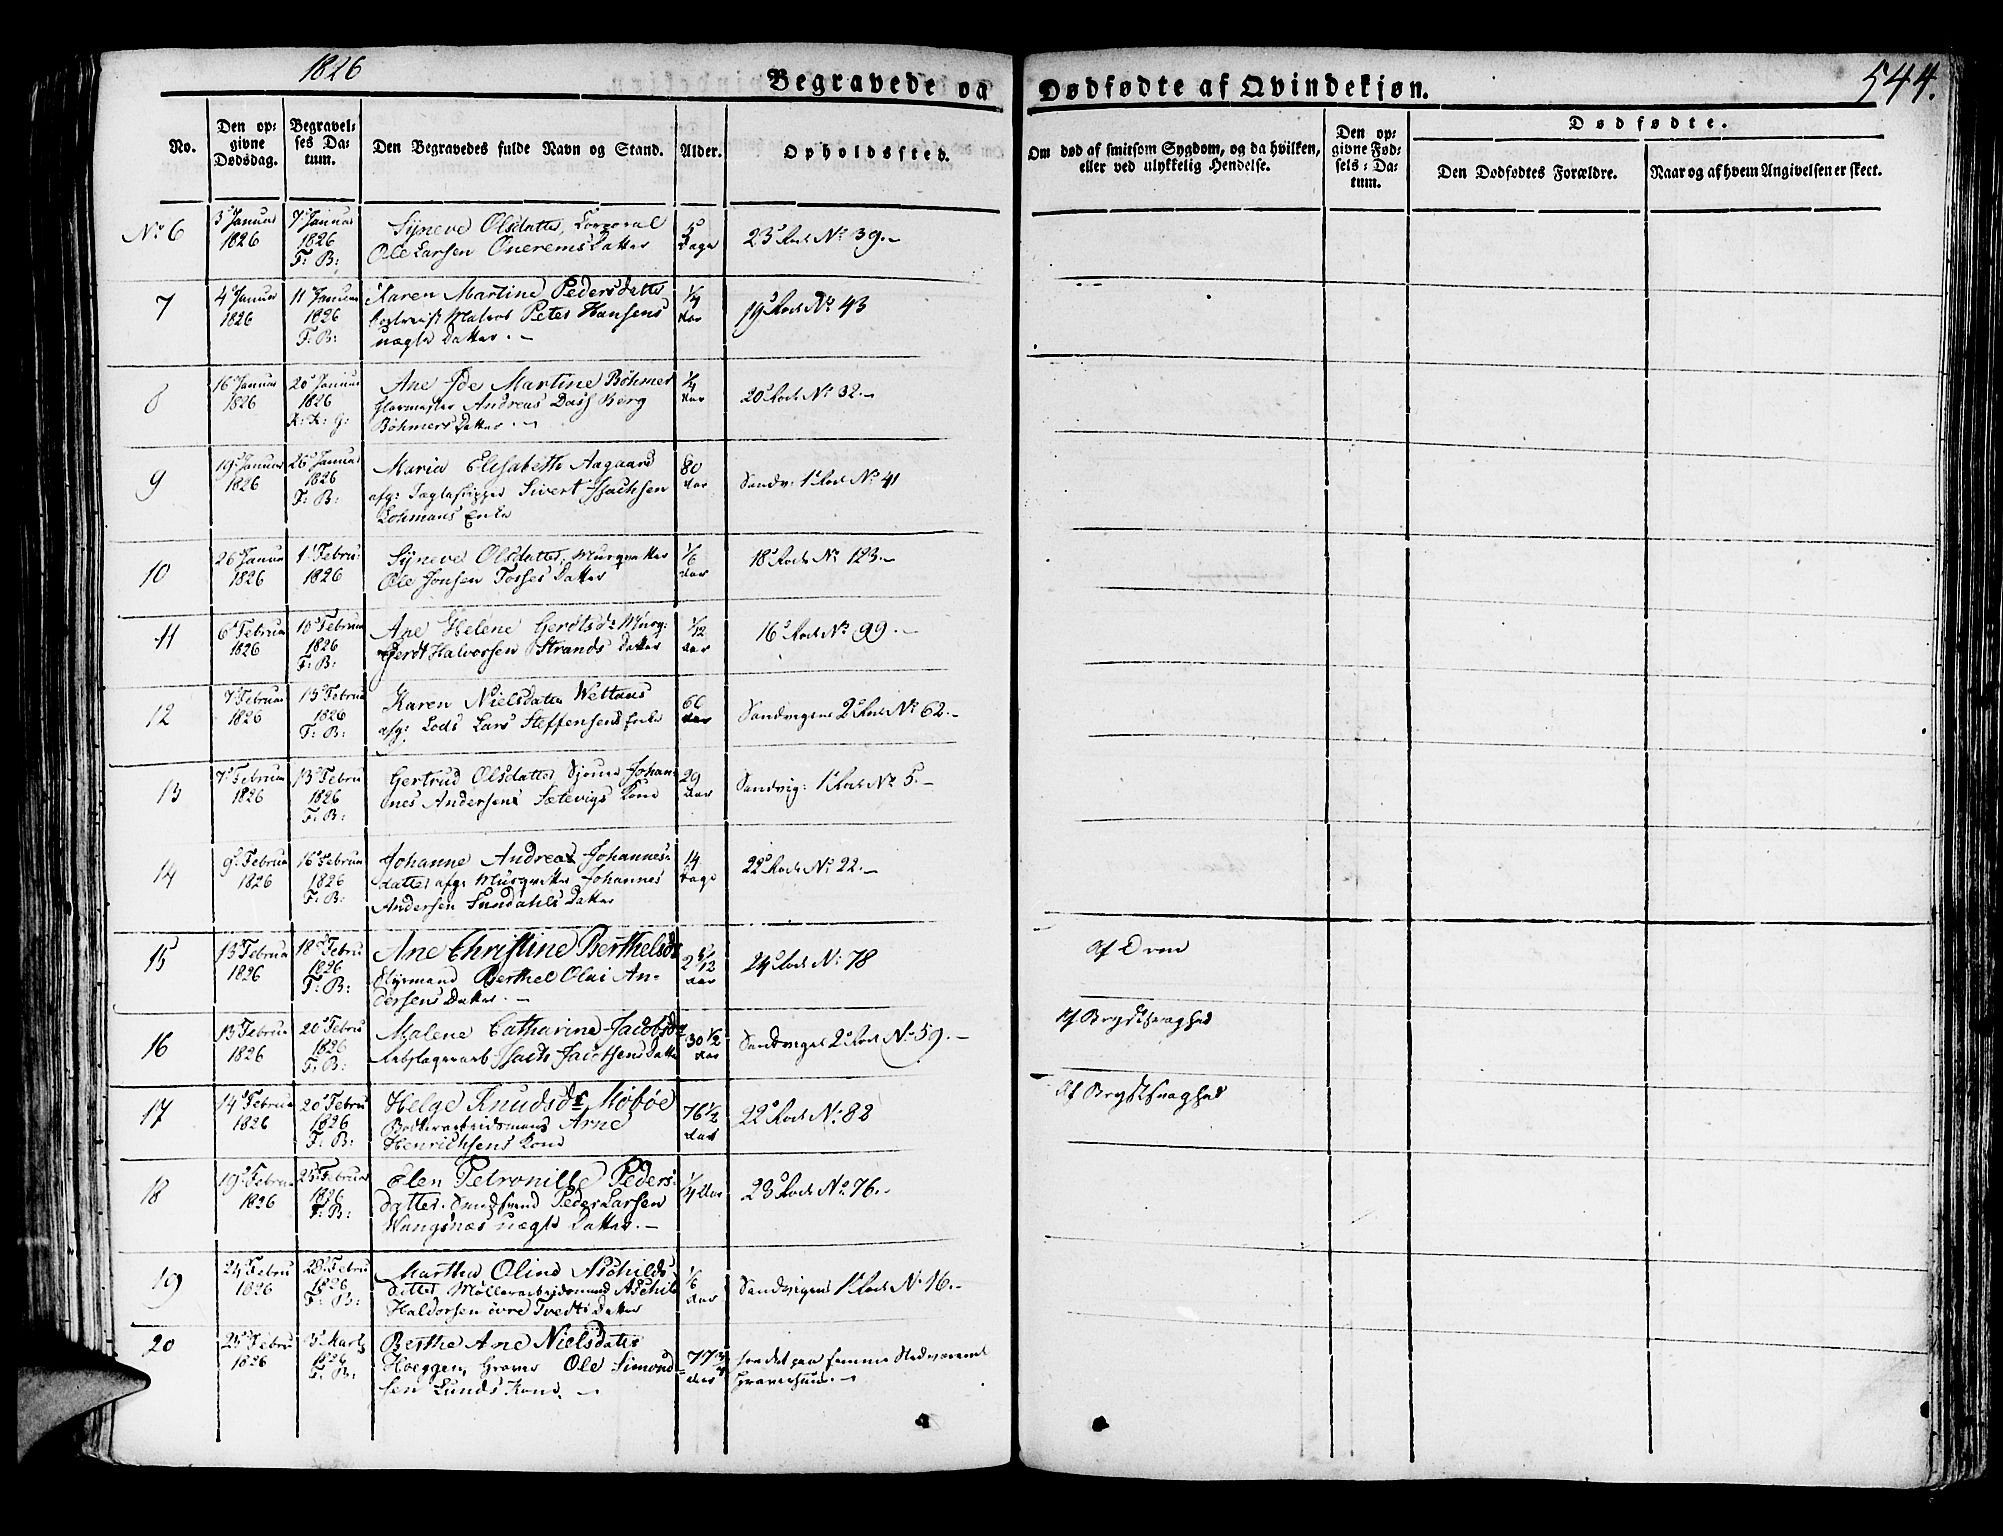 1826
Begravede og Dødfødte af Qvindekjøn.
544.
No.
Den op-
givne
Dødsdag.
Begravel-
ses Da-
tum.
Den Begravedes fulde Navn og Stand.
Alder.
Opholdssted.
Om død af smitsom Sygdom, og da hvilken,
eller ved ulykkelig Hendelse.
Den op-
givne Fød-
sels-Da-
tum.
Dødfødte.
Den Dødfødtes Forældre.
Naar og af hvem Angivelsen er skeet.
No 6
3 Januar
1826
7 Januar
1826
F: B:
Syneve Olsdatter, Corporal
Ole Larsen Datter
5
Dage
23 Rode No 39.-
7
4 Januar
1826
11 Januar
1826
F: B:
Karen Martine Pedersdatter
Matros Peter Hansens
uægte Datter.-
1/4
Aar
19 Rode No 43
8
16 Januar
1826
20 Januar
1826
K: K: G:
Ane Ide Martine Böhmer
Glarmester Andreas Dass Berg
Böhmers Datter.-
1/4
Aar
20 Rode No 32.-
9
19 Januar
1826
26 Januar
1826
F: B:
Maria Elisabeth Aagaard
afg: Sivert Isachsen
Lohmans Enke
80
Aar
Sandv: 1 Rode No 41
10
26 Januar
1826
1 Febru
1826
Syneve Olsdatter, Murgvetter
Ole Jonsen Tosses Datter
1/6
Aar
18 Rode No 123.-
11
6 Februar
1826
10 Februar
1826
F: B:
Ane Helene Gerdtsdr Murg:
Gerdt Halvorsen Strands Datter
1/12
Aar
16 Rode No 99.-
12
7 Februar
1826
13 Februar
1826
F: B:
Karen Nielsdatter
afg: Lods Lars Steffensens Enke
60
Aar
Sandvigens 2 Rode No 62.-
13
7 Februar
1826
13 Febru
1826
F: B:
Gertrud Olsdatter, Johan-
nes Andersens Sætevigs Kone
29
Aar
Sandvig: 1 Rode No 5.-
14
9 Februar
1826
16 Februar
1826
F: B:
Johanne Andrea Johannes-
datter afg: Murgvetter Johannes
Andersen Sundahls Datter
14
Dage
22 Rode No 22.-
15
13 Februar
1826
18 Febru
1826
F: B:
Ane Christine Berthelsdr
Styrmand Berthel Olai An-
dersens Datter.-
2 5/12
Aar
24 Rode No 78
Af
16
13 Februar
1826
20 Febru
1826
F: B:
Malene Catharine Jacobsdr
Isach Jacobsens Datter
30 1/2
Aar
Sandvigens 2 Rode No 59.-
Af Brystsvaghed
17
14 Februar
1826
20 Febru
1826
F: B:
Helge Knudsdr Mobøe
Arne
Henrichsens Kone
76 1/2
Aar
22 Rode No 82
Af Brystsvaghed
18
19 Februar
1826
25 Februar
1826
F: B:
Elen Petronille Peders-
datter Peder Larsen
Wangsnæs uægte Datter.-
1/4 Aar
23 Rode No 76.-
19
24 Febru
1826
28 Febru
1826
F: B:
Martha Oline Aschilds-
datter, Møllerarbeidsmand Aschild
Haldorsen øvre Tvedts Datter
1/6
Aar
Sandvigens 1 Rode No 16.-
20
25 Febru
1826
3 Marts
1826
F: B:
Berthe Ane Nielsdatter
Hoeggen, Graver Ole Simond-
sen Lunds Kone.-
77 3/4
Aar